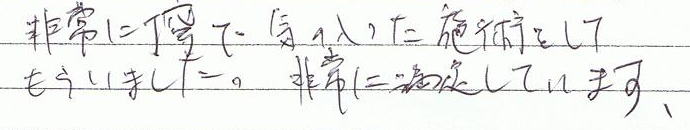 非常に丁寧で気の入った施術をして
もらいました。非常に満足しています、